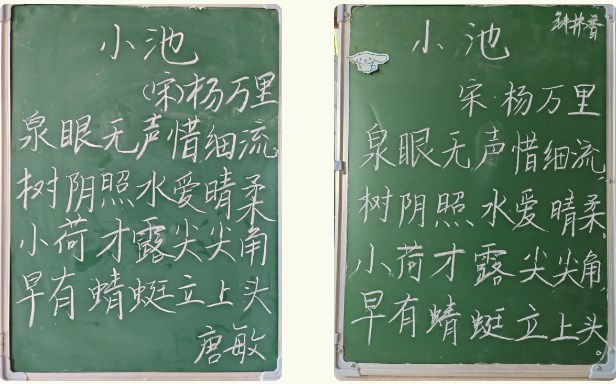 小池
（宋）杨万里
泉眼无声惜细流
树阴照水爱晴柔
小荷才露尖尖角
早有蜻蜓立上头
唐敏
小池
宋·杨万里
泉眼无声惜细流
树阴照水爱晴柔
小荷才露尖尖角
早有蜻蜓立上头。